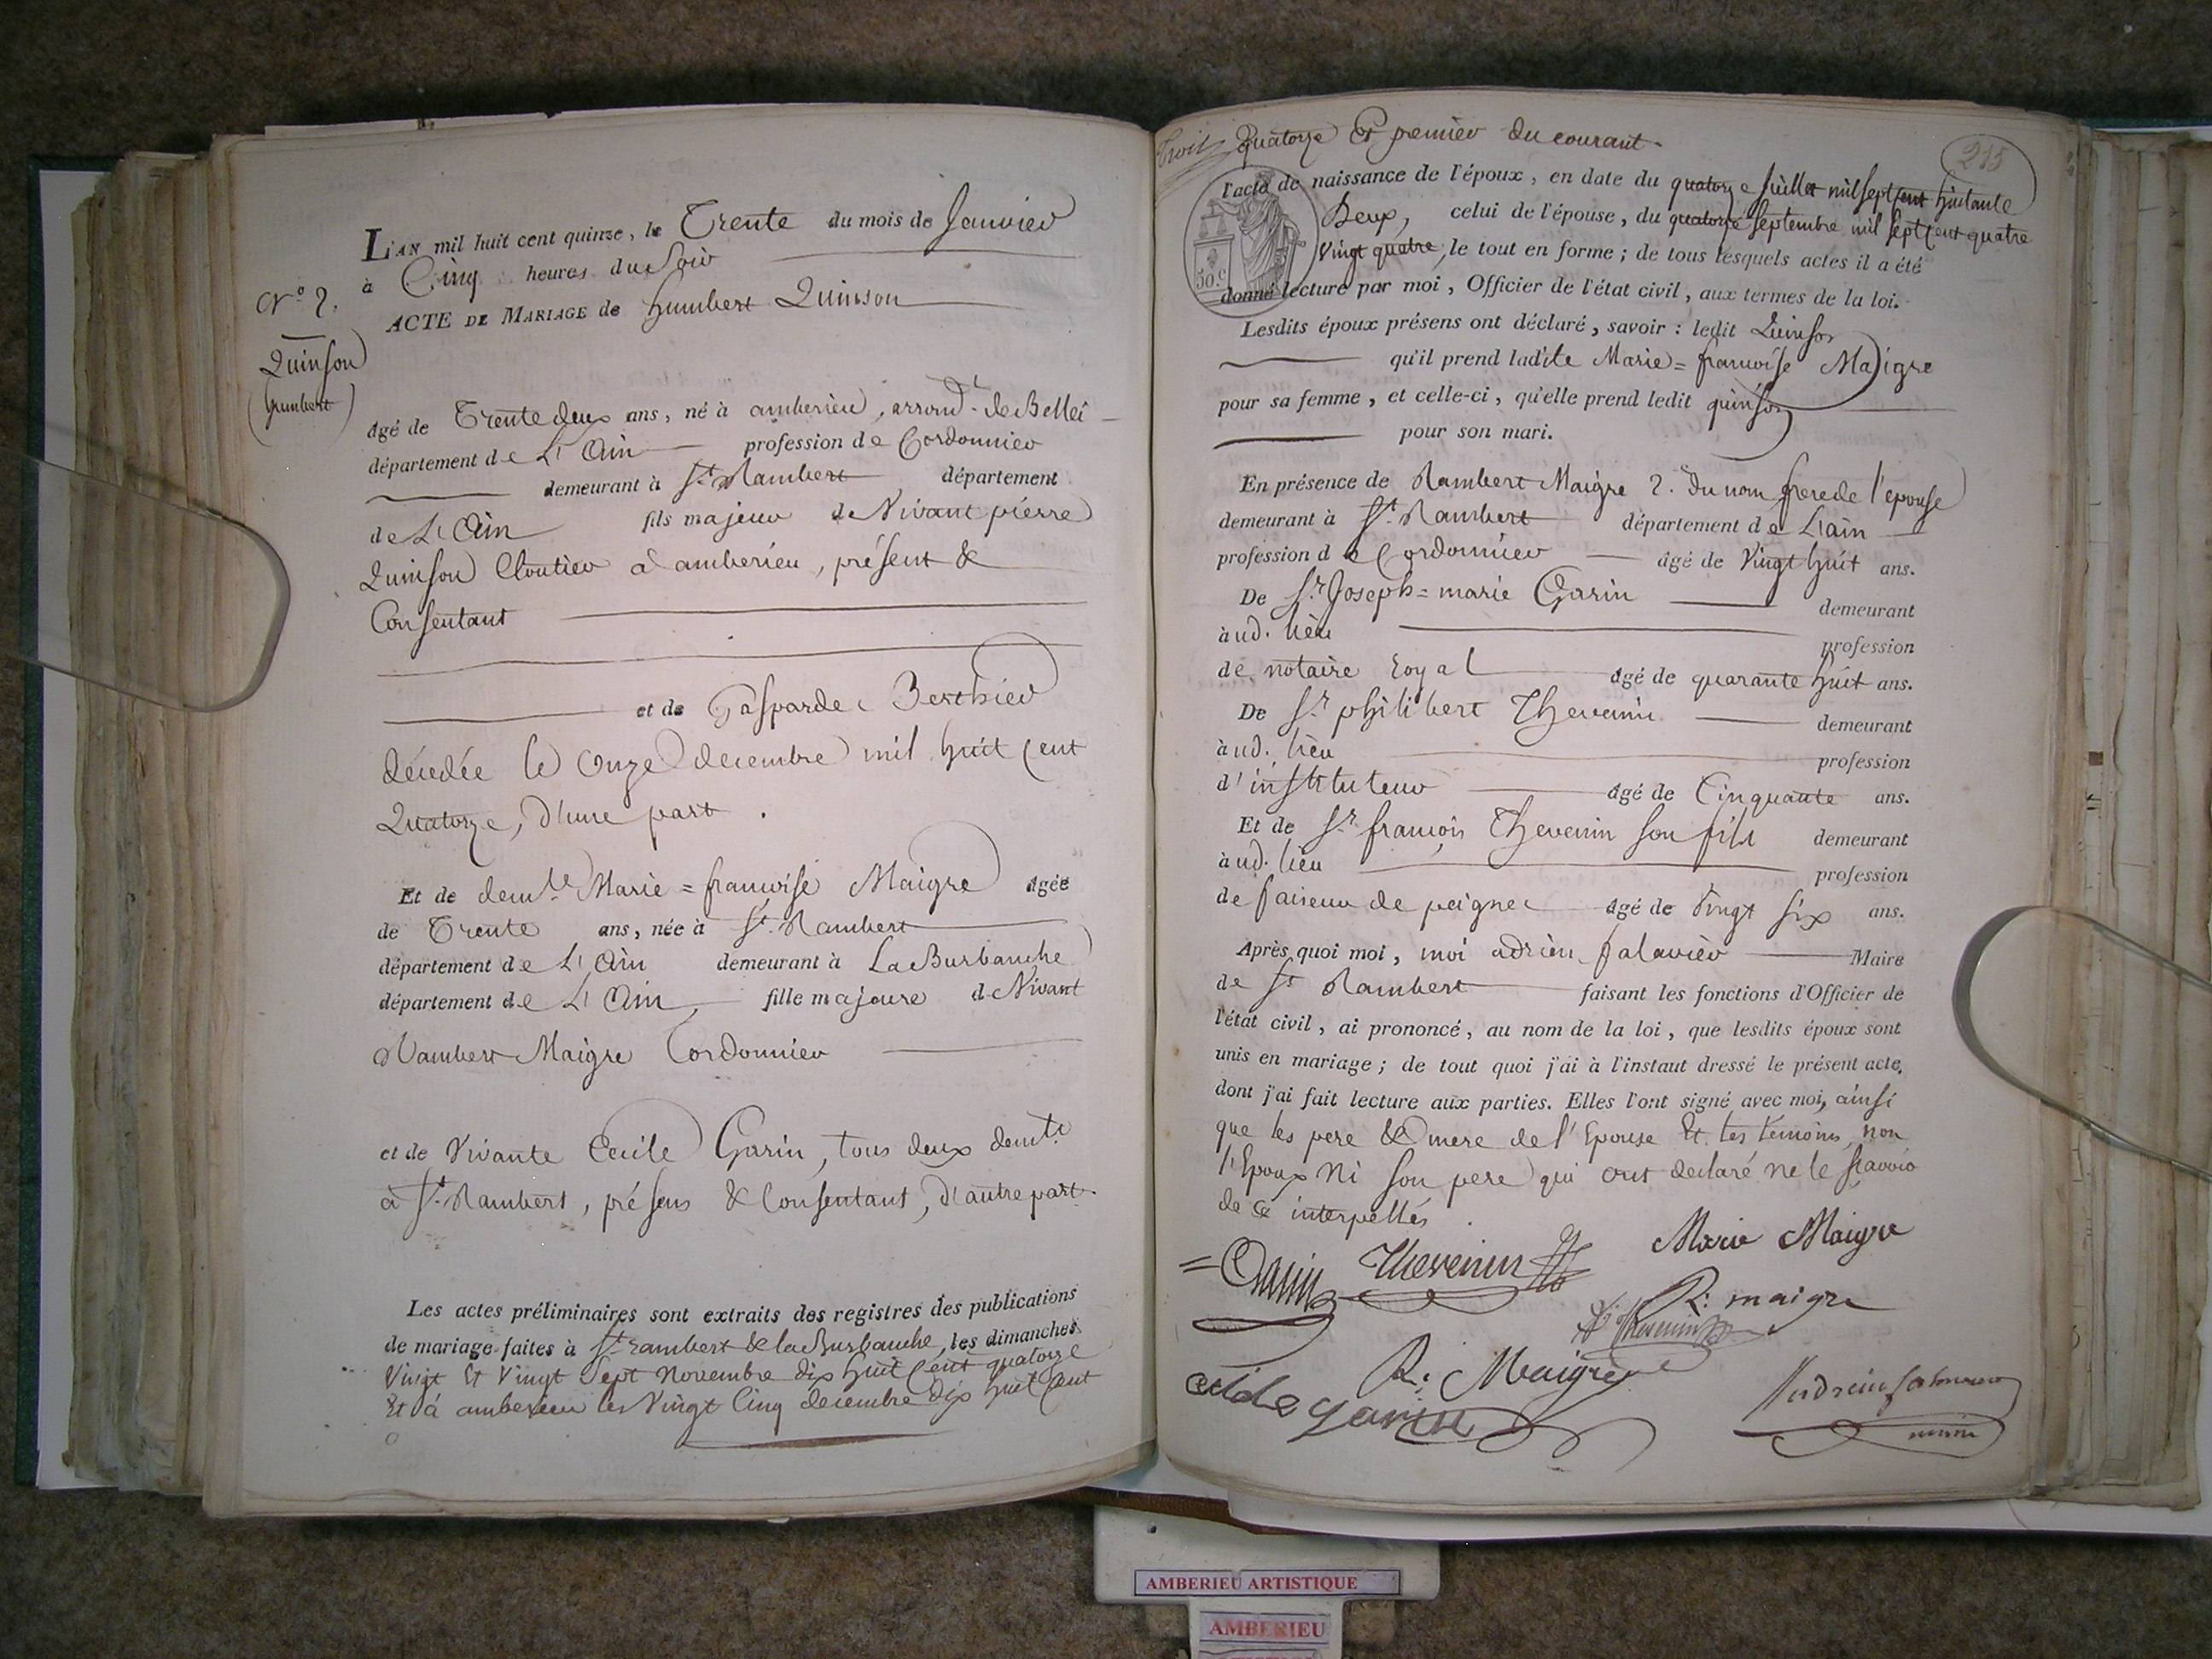 L'AN mil huit cent quinze, le Trente du mois de Janvier
à Cinq heures du Soir
N.º 2.
ACTE DE MARIAGE de humbert Quinson
Quinson
(humbert)
âgé de Trente deux ans, né à amberieu, arrond.t de Bellei
département de L'Ain profession de Cordonnier
demeurant à S.t Rambert département
de L'Ain fils majeur de Vivant pierre
Quinson Cloutier a amberieu, présent &
Consentant
et de Gasparde Berthier
décedée le Onze decembre mil huit Cent
Quatorze, d'une part.
Et de dem.lle Marie=françoise Maigre âgée
de Trente ans, née à S.t Rambert
département de L'Ain demeurant à La Burbanche
département de L'Ain, fille majeure de Vivant
Rambert Maigre Cordonnier
et de Vivante Cecile Garin, tous deux dem.ts
à S.t Rambert, présens & Consentant, d'autre part.
Les actes préliminaires sont extraits des registres des publications
de mariage faites à S.t rambert & la Burbanche, les dimanches
Vingt Et Vingt Sept Novembre dix huit Cent quatorze
Et à amberieu les Vingt Cinq decembre dix huit Cent
quatorze Et premier du courant.
215
l'acte de naissance de l'époux, en date du quatorze Juillet mil sept Cent huitante
Deux, celui de l'épouse, du quatorze Septembre mil Sept Cent quatre
Vingt quatre, le tout en forme; de tous lesquels actes il a été
50.c
donné lecture par moi, Officier de l'état civil, aux termes de la loi.
Lesdits époux présens ont déclaré, savoir: ledit Quinson
qu'il prend ladite Marie=françoise Maigre
pour sa femme, et celle-ci, qu'elle prend ledit quinson
pour son mari.
En présence de Rambert Maigre 2. du nom frere de l'epouse
demeurant à S.t Rambert département de L'ain
profession de Cordonnier âgé de Vingt huit ans.
De S.r Joseph=marie Garin demeurant
à ud. lieu profession
de notaire royal âgé de quarante huit ans.
De S.r philibert Thevenin demeurant
à ud. lieu profession
d'instituteur âgé de Cinquante ans.
Et de S.r françois Thevenin son fils demeurant
à ud. lieu profession
de faiseur de peignes âgé de Vingt Six ans.
Après quoi moi, moi adrien falavier Maire
de S.t Rambert faisant les fonctions d'Officier de
l'état civil, ai prononcé, au nom de la loi, que lesdits époux sont
unis en mariage; de tout quoi j'ai à l'instant dressé le présent acte,
dont j'ai fait lecture aux parties. Elles l'ont signé avec moi, ainsi
que les pere & mere de l'Epouse Et les temoins, non
l'Epoux Ni Son pere qui ont declaré ne le sçavoir
de ce interpellés.
Garin Thevenin Marie Maigre
R: maigre
f: Thevenin
R: Maigre
cecile garin
AMBERIEU ARTISTIQUE
AMBERIEU